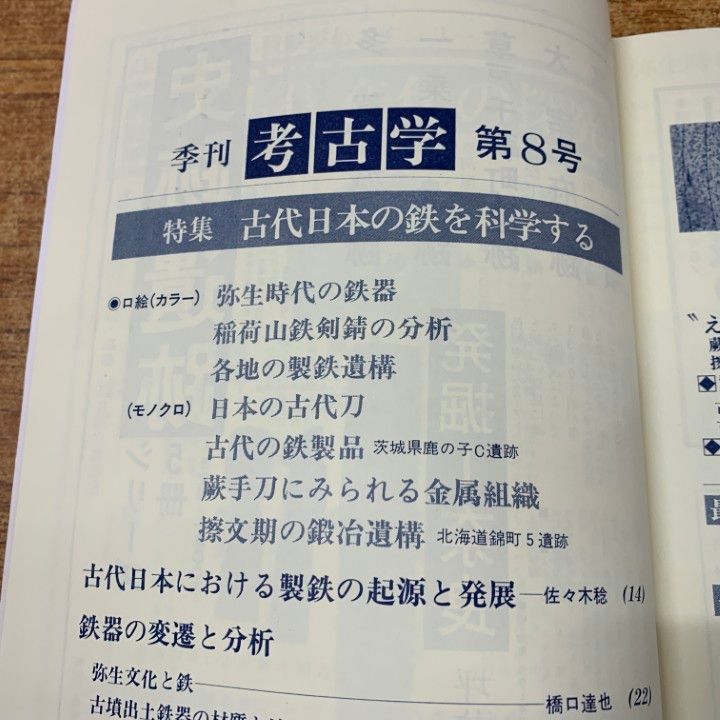 季刊 考古学 第8号
特集 古代日本の鉄を科学する
◉口絵(カラー) 弥生時代の鉄器
稲荷山鉄剣錆の分析
各地の製鉄遺構
(モノクロ) 日本の古代刀
古代の鉄製品 茨城県鹿の子C遺跡
蕨手刀にみられる金属組織
擦文期の鍛冶遺構 北海道錦町5遺跡
古代日本における製鉄の起源と発展―佐々木稔 (14)
鉄器の変遷と分析
弥生文化と鉄―橋口達也 (22)
古墳出土鉄器の材質と